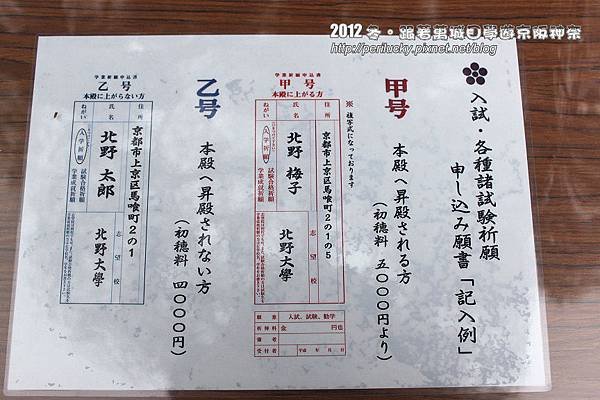 2012冬。跟著黑城口學遊京阪神奈
http://perilucky.pixnet.net/blog
入試・各種諸試験祈願
申し込み願書「記入例」
甲号
本殿へ昇殿される方
（初穂料 五〇〇〇円より）
※複写式になっております
学業祈願申込書
甲号
本殿に上がる方
住所
京都市上京区馬喰町2の1の5
氏名
北野 梅子
ねがい
入学祈願
試験合格祈願
学業成就祈願
志望校
北野大學
願意
入試、試験、勤学
祈祷料
金
円也
備考
受付者
平成 年 月 日
乙号
本殿へ昇殿されない方
（初穂料 四〇〇〇円）
学業祈願申込書
乙号
本殿に上がらない方
住所
京都市上京区馬喰町2の1
氏名
北野 太郎
ねがい
入学祈願
試験合格祈願
学業成就祈願
志望校
北野大學